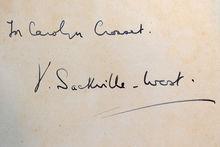 For Carolyn Crosset.
V. Sackville-West.